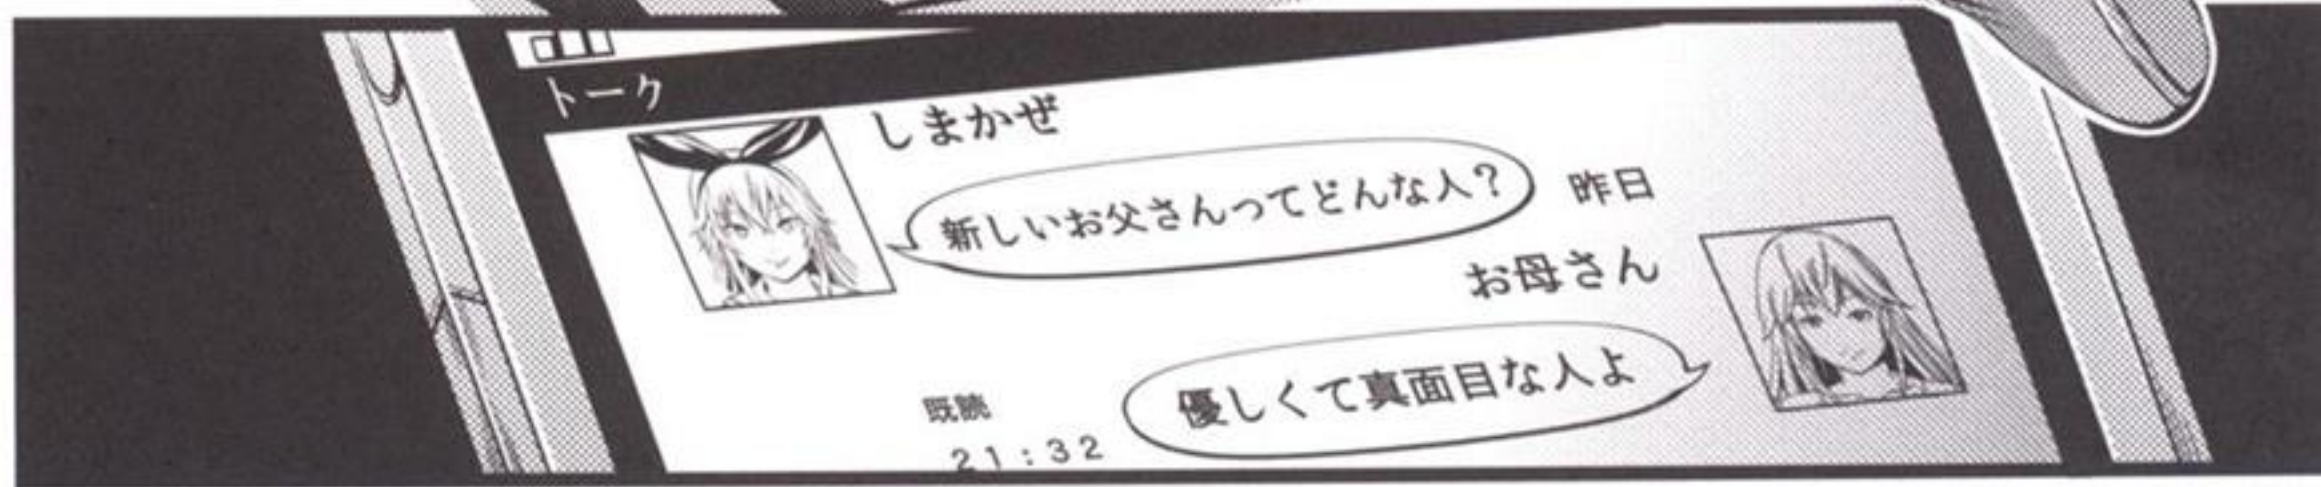 トーク
しまかぜ
新しいお父さんってどんな人?
昨日
お母さん
優しくて真面目な人よ
既読
21:32